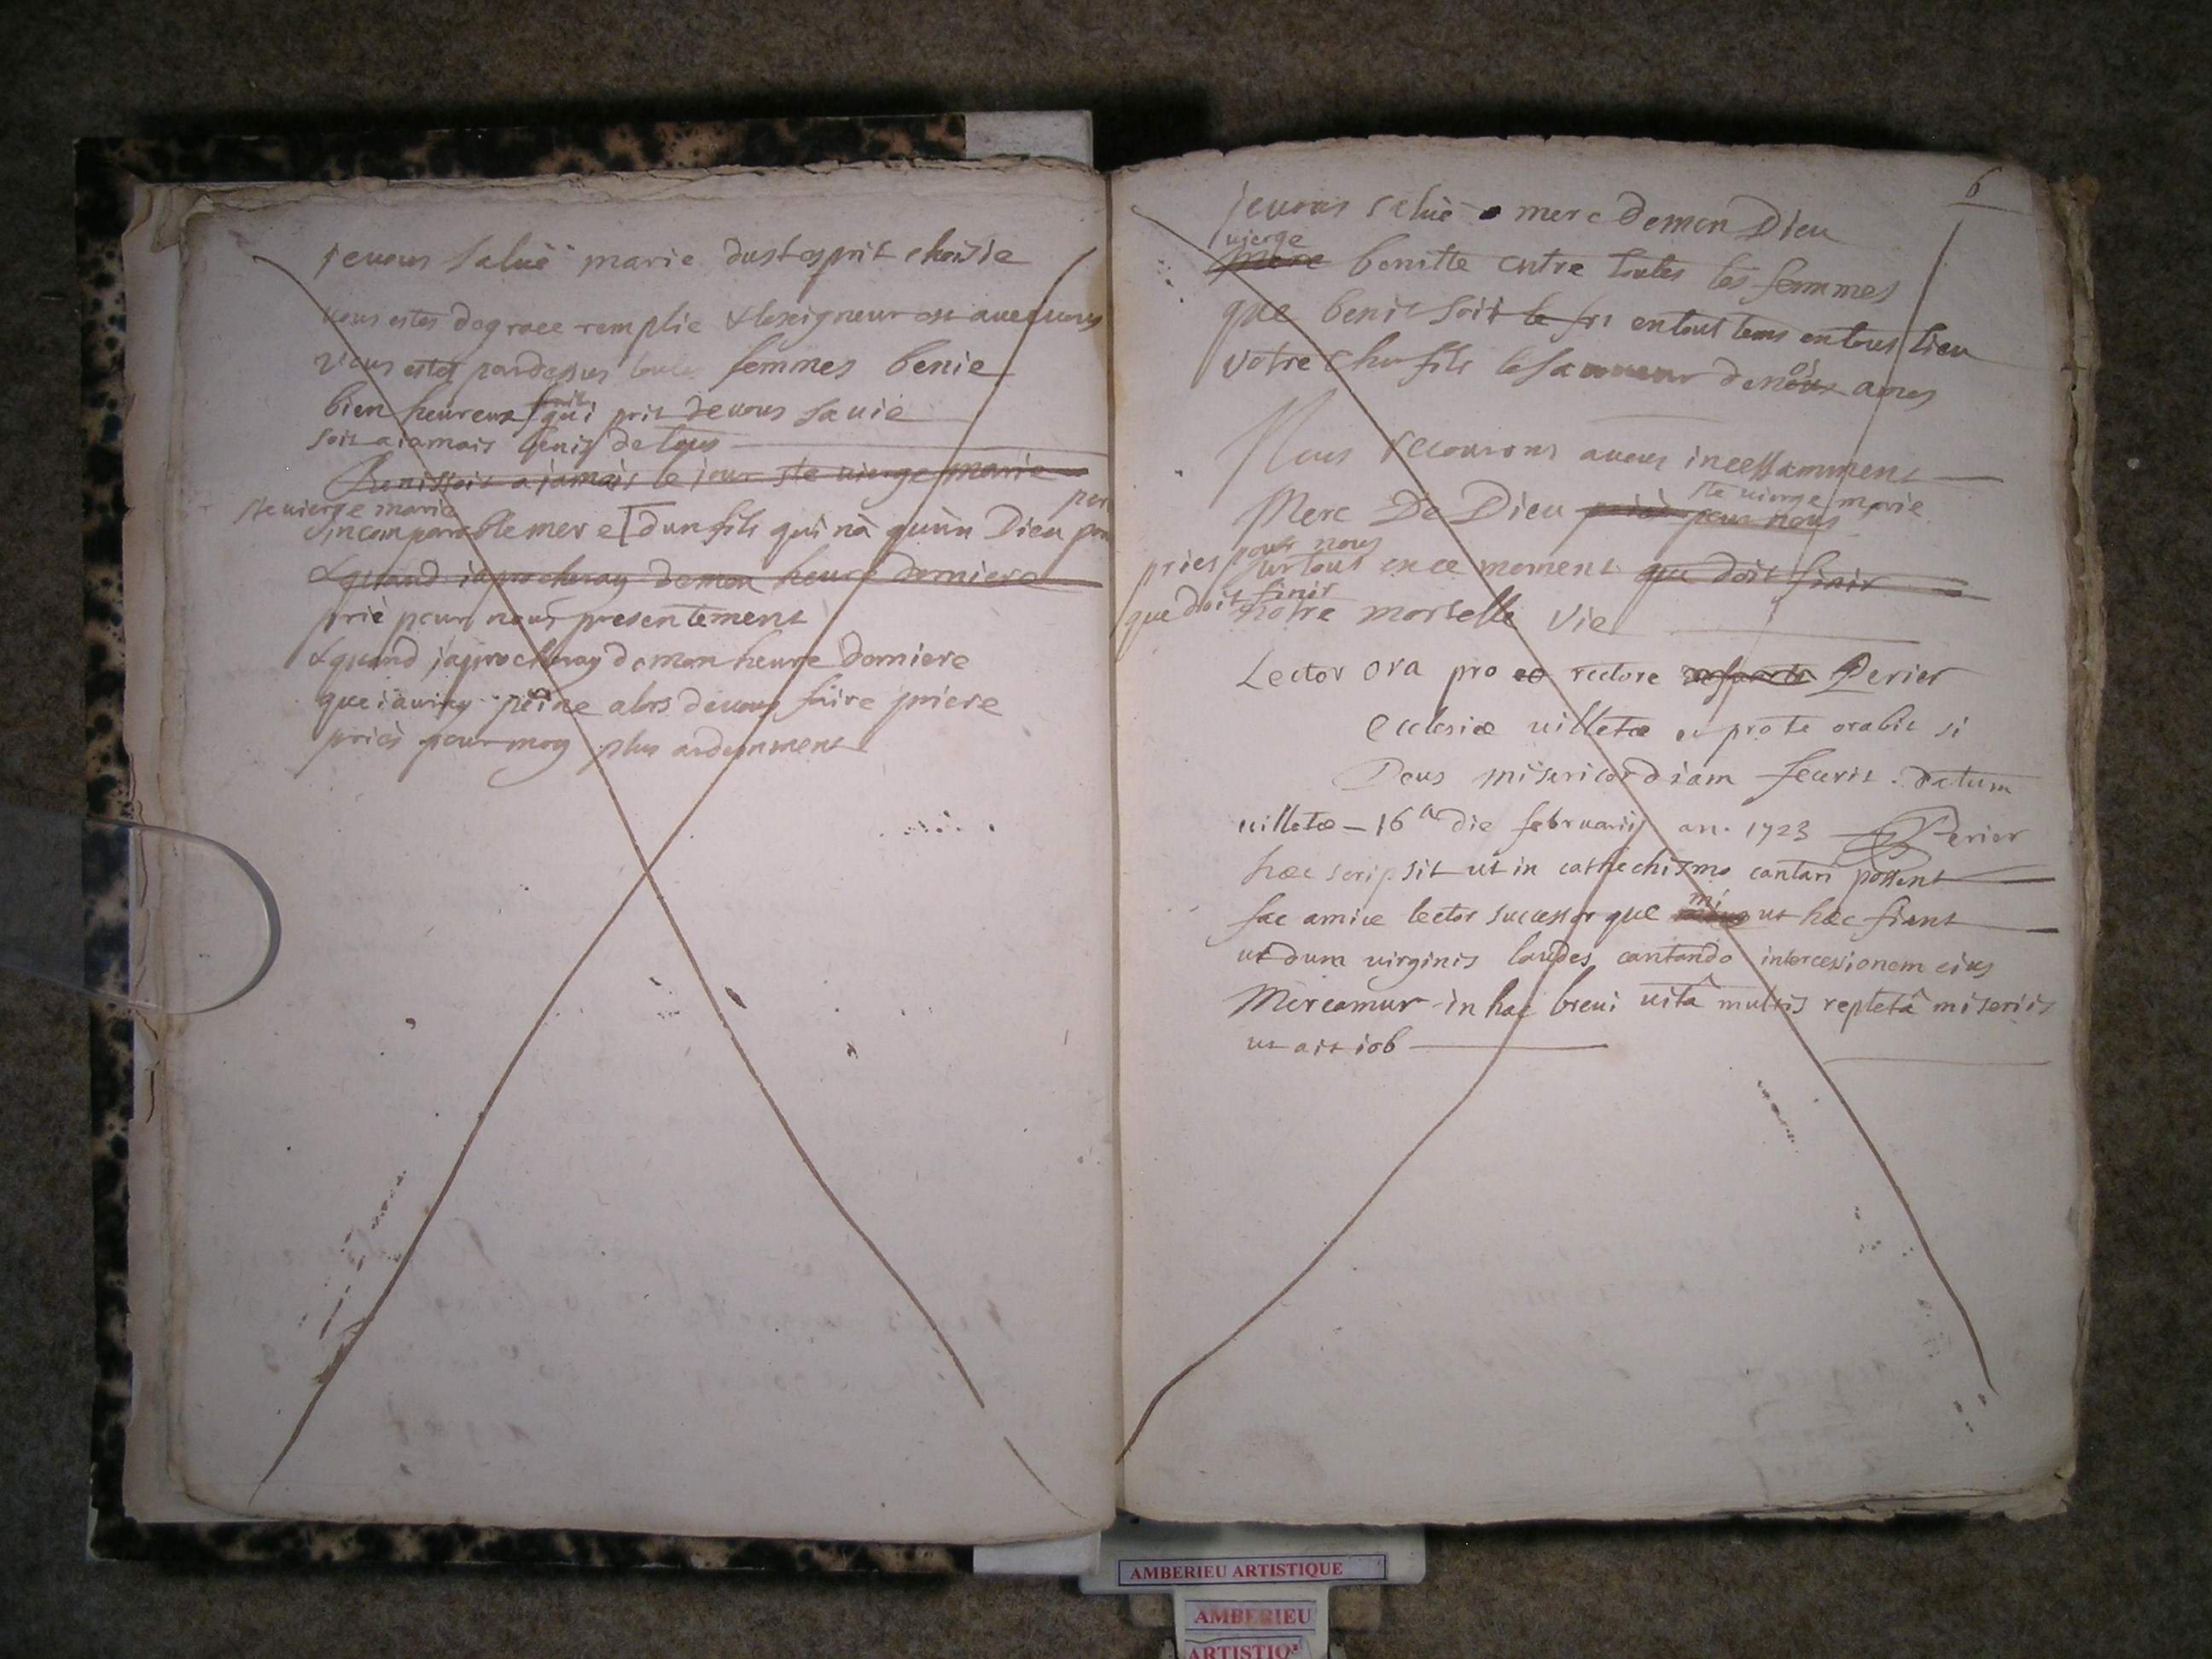 jevous saluë marie du st esprit choisie
vous estes de grace remplie & leseigneur est avecvous
vous estes pardessus toutes femmes benie
bien heureux fruit qui prit devous sa vie
soit a iamais benis de tous
Benissoit a jamais le jour ste vierge marie
ste vierge marie
incomparable mere dun fils qui nà quùn Dieu pour
pere
& quand iaprocheray demon heure derniere
priè pour nous presentement
& quand japrocheray demon heure derniere
que iauray peine alors devous faire priere
priès pour moy plus ardemment
6
jevous saluë mere demon Dieu
vierge
mere benitte entre toutes les femmes
que benit soit le fri entout tems entous lieu
votre cher fils le sauveur denos ames
Nous recourons avous incessamment
ste vierge marie
Mere De Dieu priès pour nous
pries pour nous surtous ence moment que doit finir
que doit finir notre mortelle vie
Lector ora pro eo rectore defuncto Perier
Ecclesiæ villetæ et pro te orabit si
Deus misericordiam fecerit. datum
villetæ - 16a die februarij an. 1723 Perier
hæc scripsit ut in cathechismo cantari possent
fac amice lector successor que mi ut hæc fiant
ut dum virginis laudes cantando intercessionem eius
Mereamur in hac brevi vitâ multis repletâ miseriis
ut ait iob
AMBERIEU ARTISTIQUE
AMBERIEU
ARTISTIQ